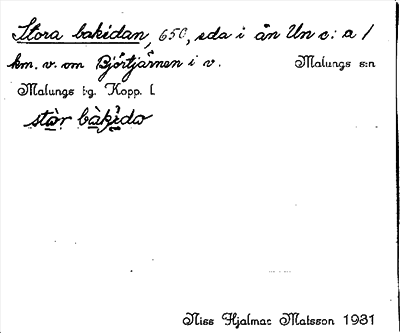 Stora bakidan, 650, eda i ån Un c: a 1
km. v. om Björtjärnen i v. Malungs s:n
Malungs tg. Kopp. L
stòr bàkido
Niss Hjalmar Matsson 1931